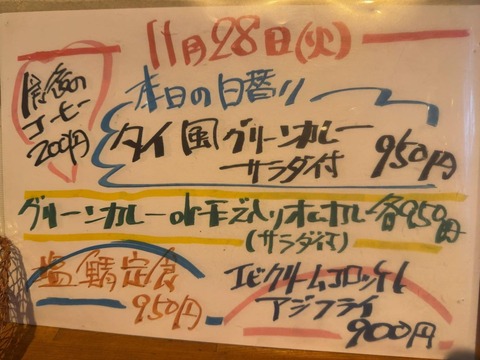 11月28日(火)
食後の
コーヒー
200円
本日の日替り
タイ風グリーンカレー
サラダ付 950円
グリーンカレーorチーズ入りオムカレー各950円
(サラダ付)
塩鯖定食
950円
エビクリームコロッケ&
アジフライ
900円